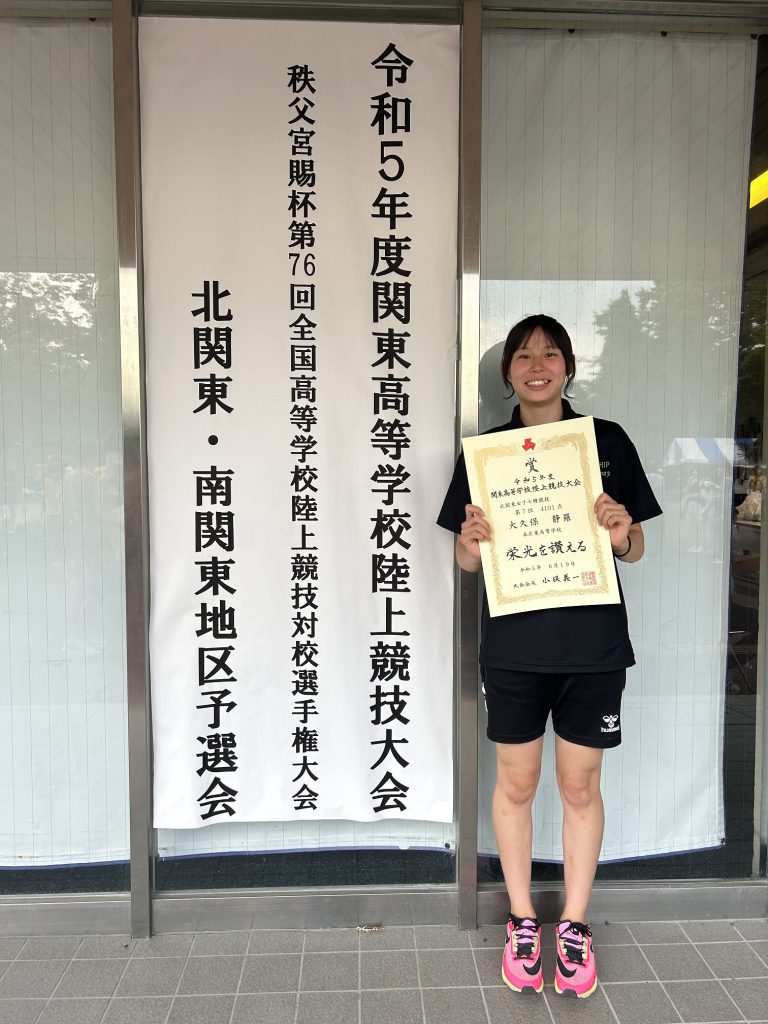 令和5年度関東高等学校陸上競技大会
秩父宮賜杯第76回全国高等学校陸上競技対校選手権大会
北関東・南関東地区予選会
賞
令和5年度
関東高等学校陸上競技大会
北関東女子七種競技
第7位 4101点
大久保 静羅
栄光を讃える
令和5年 6月19日
大会会長 小坂義一
HIP
hummel